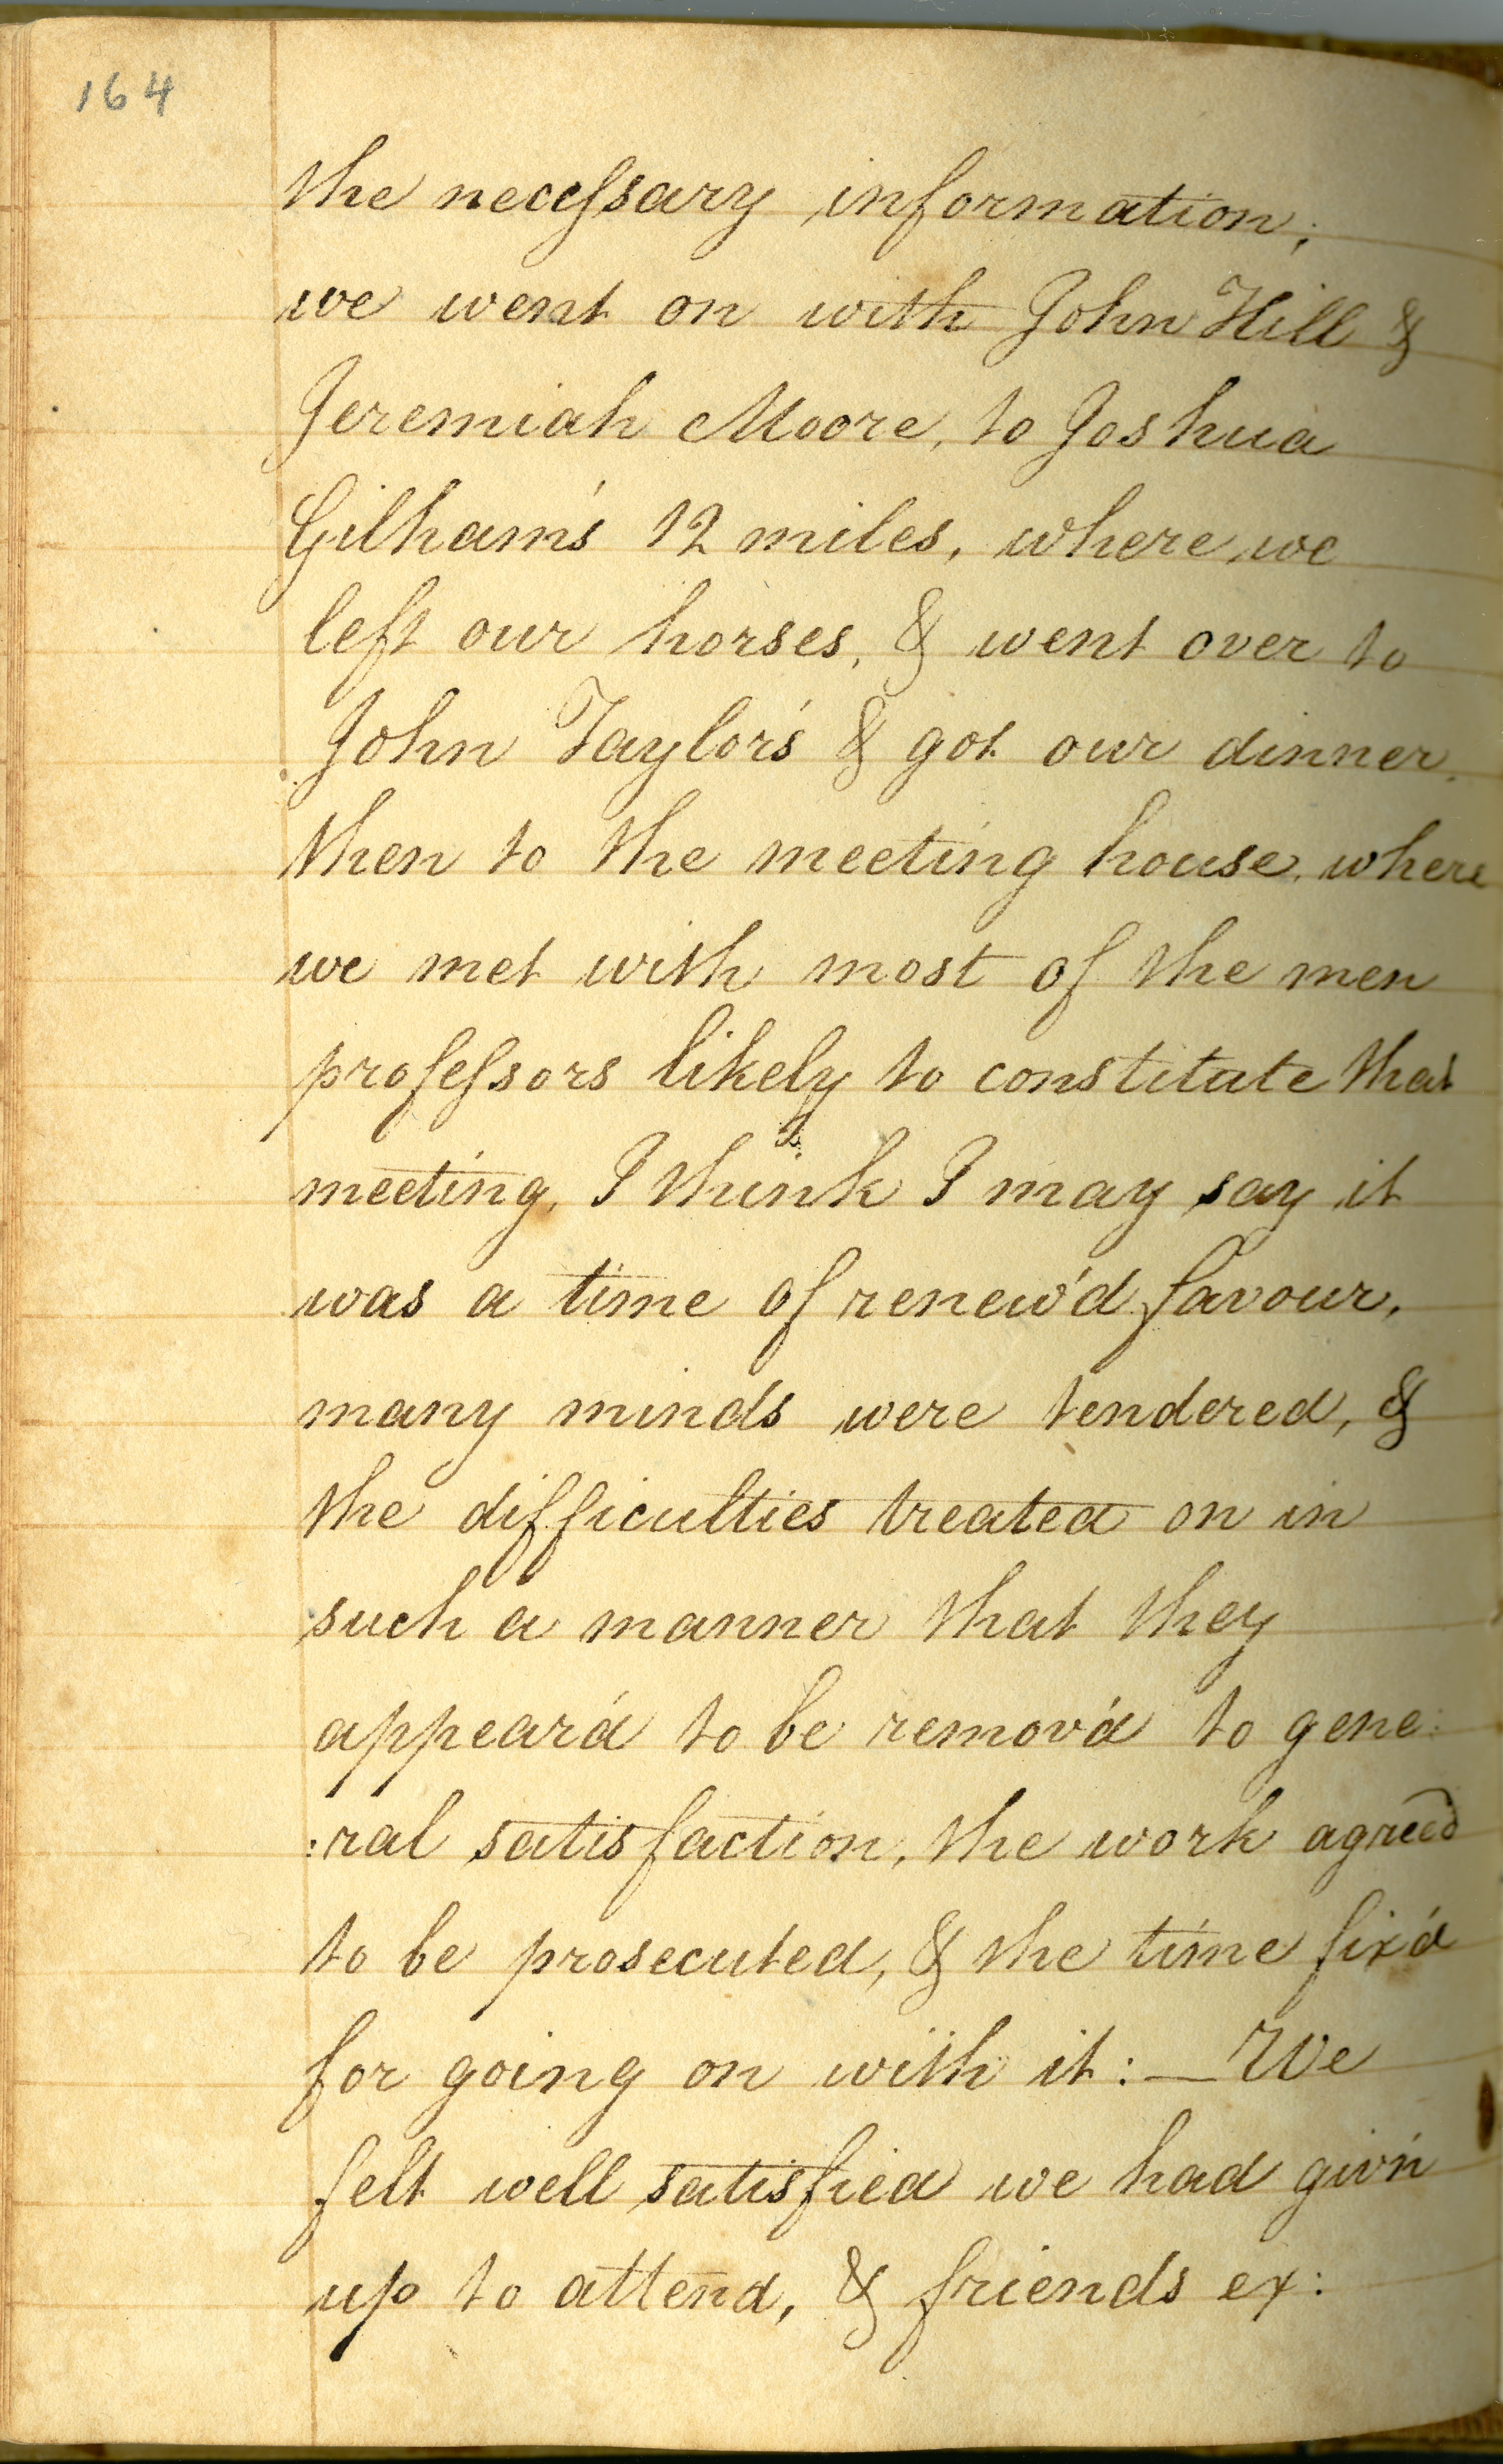 164
the necessary information;
we went on with John Hill &
Jeremiah Moore, to Joshua
Gilham's 12 miles, where we
left our horses, & went over to
John Taylor's & got our dinner,
then to the meeting house, where
we met with most of the men
professors likely to constitute that
meeting, I think I may say it
was a time of renew'd favour,
many minds were tendered, &
the difficulties treated on in
such a manner that they
appear'd to be remov'd to gene:
:ral satisfaction, the work agreed
to be prosecuted, & the time fix'd
for going on with it: — We
felt well satisfied we had giv'n
up to attend, & friends ex: